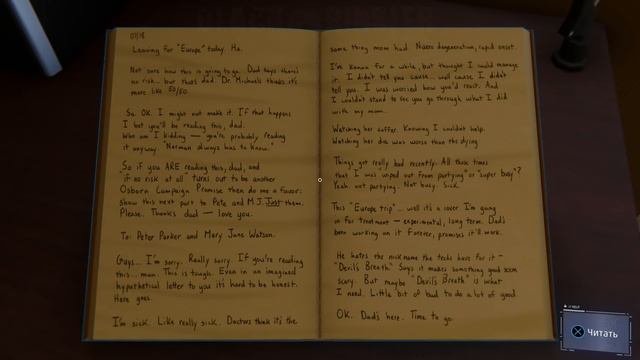 07/18
Leaving for "Europe" today. Ha.
Not sure how this is going to go. Dad says there's
no risk... but that's dad. Dr. Michaels thinks it's
more like 50/50.
So. OK. I might not make it. If that happens
I bet you'll be reading this, dad.
Who am I kidding — you're probably reading
it anyway. "Norman always has to know."
So if you ARE reading this, dad, and
"if no risk at all" turns out to be another
Osborn Campaign Promise then do me a favor:
show this next part to Pete and MJ. Just them.
Please. Thanks dad — love you.
To: Peter Parker and Mary Jane Watson.
Guys... I'm sorry. Really sorry. If you're reading
this... man. This is tough. Even in an imagined
hypothetical letter to you it's hard to be honest.
Here goes.
I'm sick. Like really sick. Doctors think it's the
same thing mom had. Neuro degeneration, rapid onset.
I've known for a while, but thought I could manage
it. I didn't tell you cause... well cause I didn't
tell you. I was worried how you'd react. And
I couldn't stand to see you go through what I did
with my mom.
Watching her suffer. Knowing I couldn't help.
Watching her die was worse than the dying
Things got really bad recently. All those times
that I was "wiped out from partying" or "super busy"?
Yeah. Not partying. Not busy. Sick.
This "Europe trip"... well it's a cover. I'm going
in for treatment — experimental, long term. Dad's
been working on it forever, promises it'll work.
He hates the nickname the techs have for it -
"Devil's Breath" Says it makes something good seem
scary. But maybe "Devil's Breath" is what
I need. Little bit of bad to do a lot of good
OK. Dad's here. Time to go.
Читать